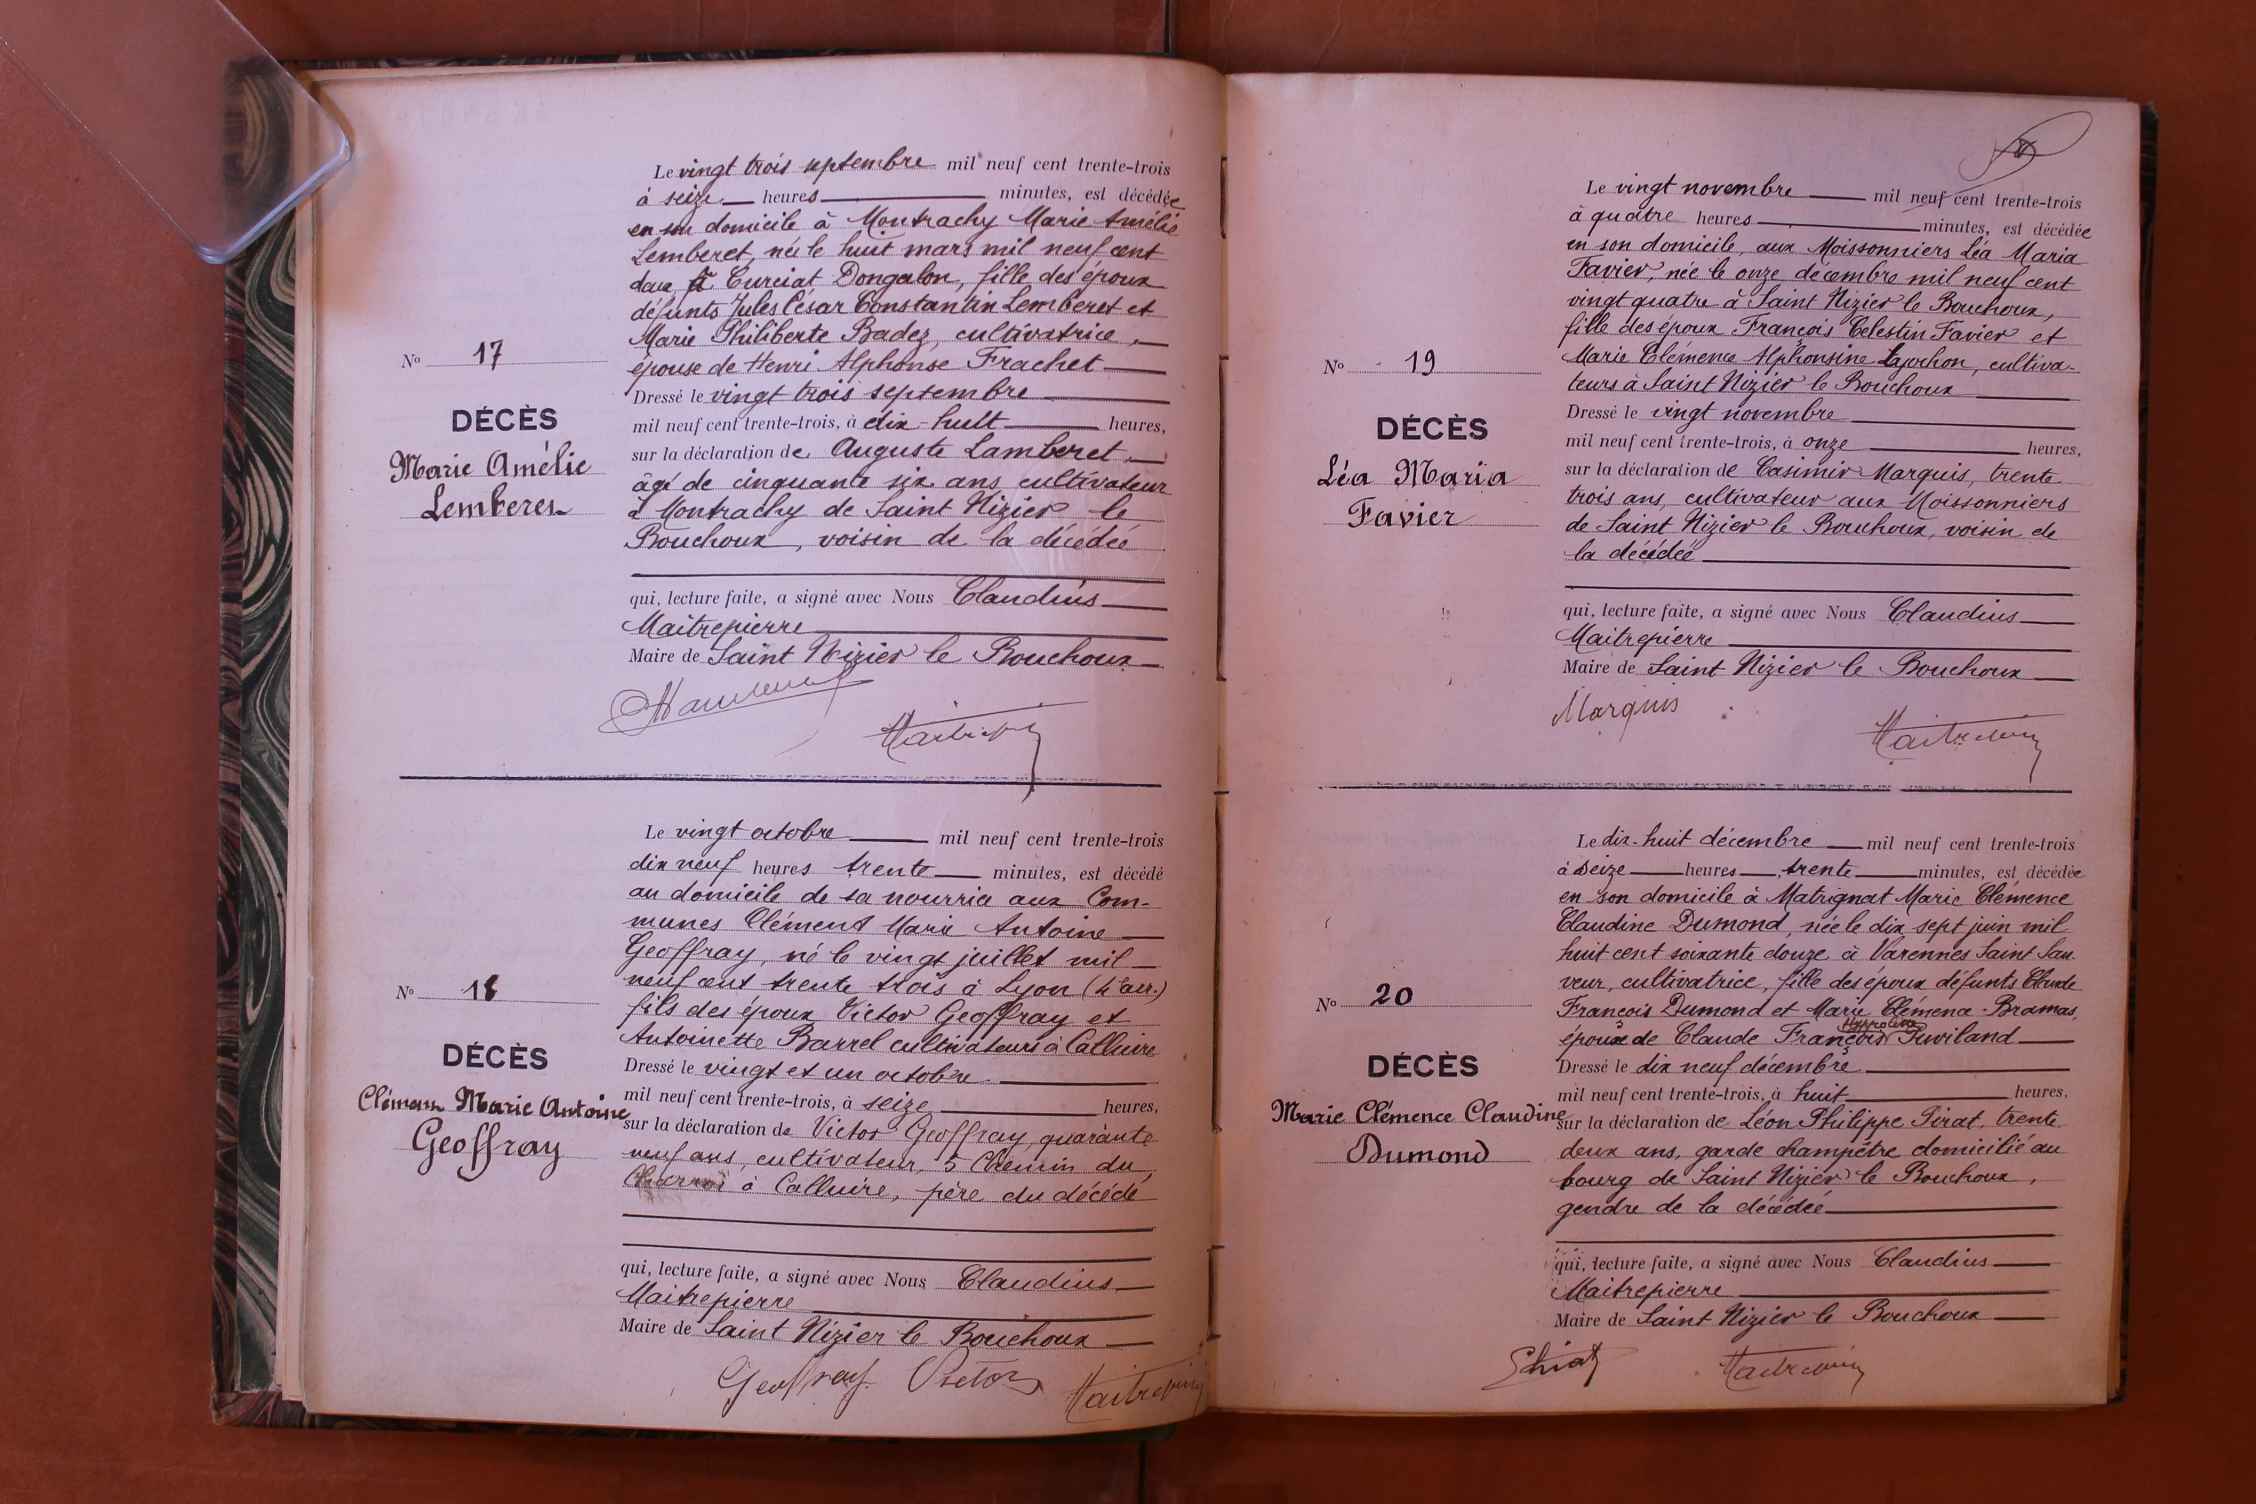 Le vingt trois septembre mil neuf cent trente-trois
à seize heures minutes, est décédée
en son domicile à Montrachy Marie Amélie
Lemberet, née le huit mars mil neuf cent
deux à Curciat Dongalon, fille des époux
défunts Jules César Constantin Lemberet et
Marie Philiberte Badez, cultivatrice,
No 17
épouse de Henri Alphonse Frachet
Dressé le vingt trois septembre
DÉCÈS
mil neuf cent trente-trois, à dix-huit heures,
Marie Amélie
Lemberet
sur la déclaration de Auguste Lamberet,
âgé de cinquante six ans cultivateur
à Montrachy de Saint Nizier le
Bouchoux, voisin de la décédée
qui, lecture faite, a signé avec Nous Claudius
Maitrepierre
Maire de Saint Nizier le Bouchoux
Le vingt octobre mil neuf cent trente-trois
dix neuf heures trente minutes, est décédé
au domicile de sa nourrice aux Com-
munes Clément Marie Antoine
Geoffray, né le vingt juillet mil
neuf cent trente trois à Lyon (4e arr.)
No 18
fils des époux Victor Geoffray et
Antoinette Barrel cultivateurs à Calluire
DÉCÈS
Dressé le vingt et un octobre
mil neuf cent trente-trois, à seize heures,
Clément Marie Antoine
Geoffray
sur la déclaration de Victor Geoffray, quarante
neuf ans, cultivateur, 5 Chemin du
à Calluire, père du décédé
qui, lecture faite, a signé avec Nous Claudius
Maitrepierre
Maire de Saint Nizier le Bouchoux
Geoffray Victor Maitrepierre
Le vingt novembre mil neuf cent trente-trois
à quatre heures minutes, est décédée
en son domicile, aux Moissonniers Léa Maria
Favier, née le onze décembre mil neuf cent
vingt quatre à Saint Nizier le Bouchoux,
fille des époux François Célestin Favier et
No 19
Marie Clémence Alphonsine Lyochon, cultiva-
teurs à Saint Nizier le Bouchoux
Dressé le vingt novembre
DÉCÈS
mil neuf cent trente-trois, à onze heures,
Léa Maria
Favier
sur la déclaration de Casimir Marquis, trente
trois ans, cultivateur aux Moissonniers
de Saint Nizier le Bouchoux, voisin de
la décédée
qui, lecture faite, a signé avec Nous Claudius
Maitrepierre
Maire de Saint Nizier le Bouchoux
Marquis
Maitrepierre
Le dix-huit décembre mil neuf cent trente-trois
à seize heures trente minutes, est décédée
en son domicile à Matrignat Marie Clémence
Claudine Dumond, née le dix sept juin mil
huit cent soixante douze à Varennes Saint Sau-
veur, cultivatrice, fille des époux défunts Claude
No 20
François Dumond et Marie Clémence Bramas,
Hyppolite
épouse de Claude François Tuviland
DÉCÈS
Dressé le dix neuf décembre
mil neuf cent trente-trois, à huit heures,
Marie Clémence Claudine
Dumond
sur la déclaration de Léon Philippe Pirat, trente
deux ans, garde champêtre domicilié au
bourg de Saint Nizier le Bouchoux,
gendre de la décédée
qui, lecture faite, a signé avec Nous Claudius
Maitrepierre
Maire de Saint Nizier le Bouchoux
Maitrepierre